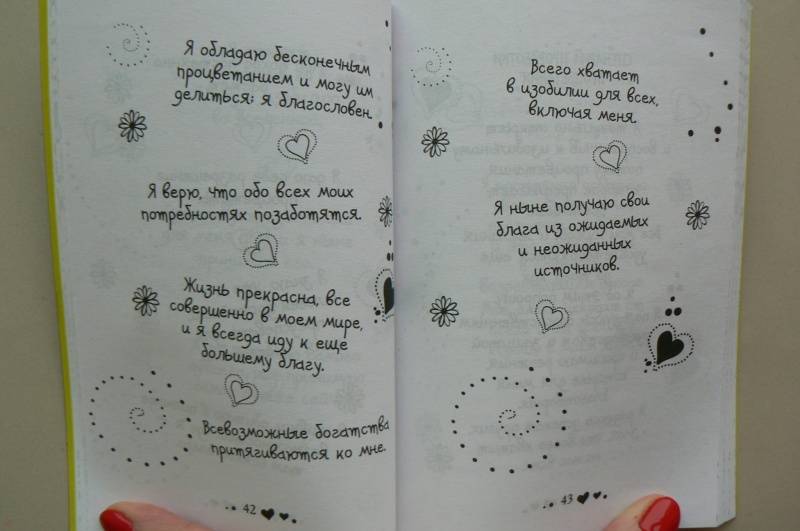 Я обладаю бесконечным
процветанием и могу им
делиться: я благословен.
Я верю, что обо всех моих
потребностях позаботятся.
Жизнь прекрасна, все
совершенно в моем мире,
и я всегда иду к еще
большему благу.
Всевозможные богатства
притягиваются ко мне.
42
Всего хватает
в изобилии для всех,
включая меня.
Я ныне получаю свои
блага из ожидаемых
и неожиданных
источников.
43